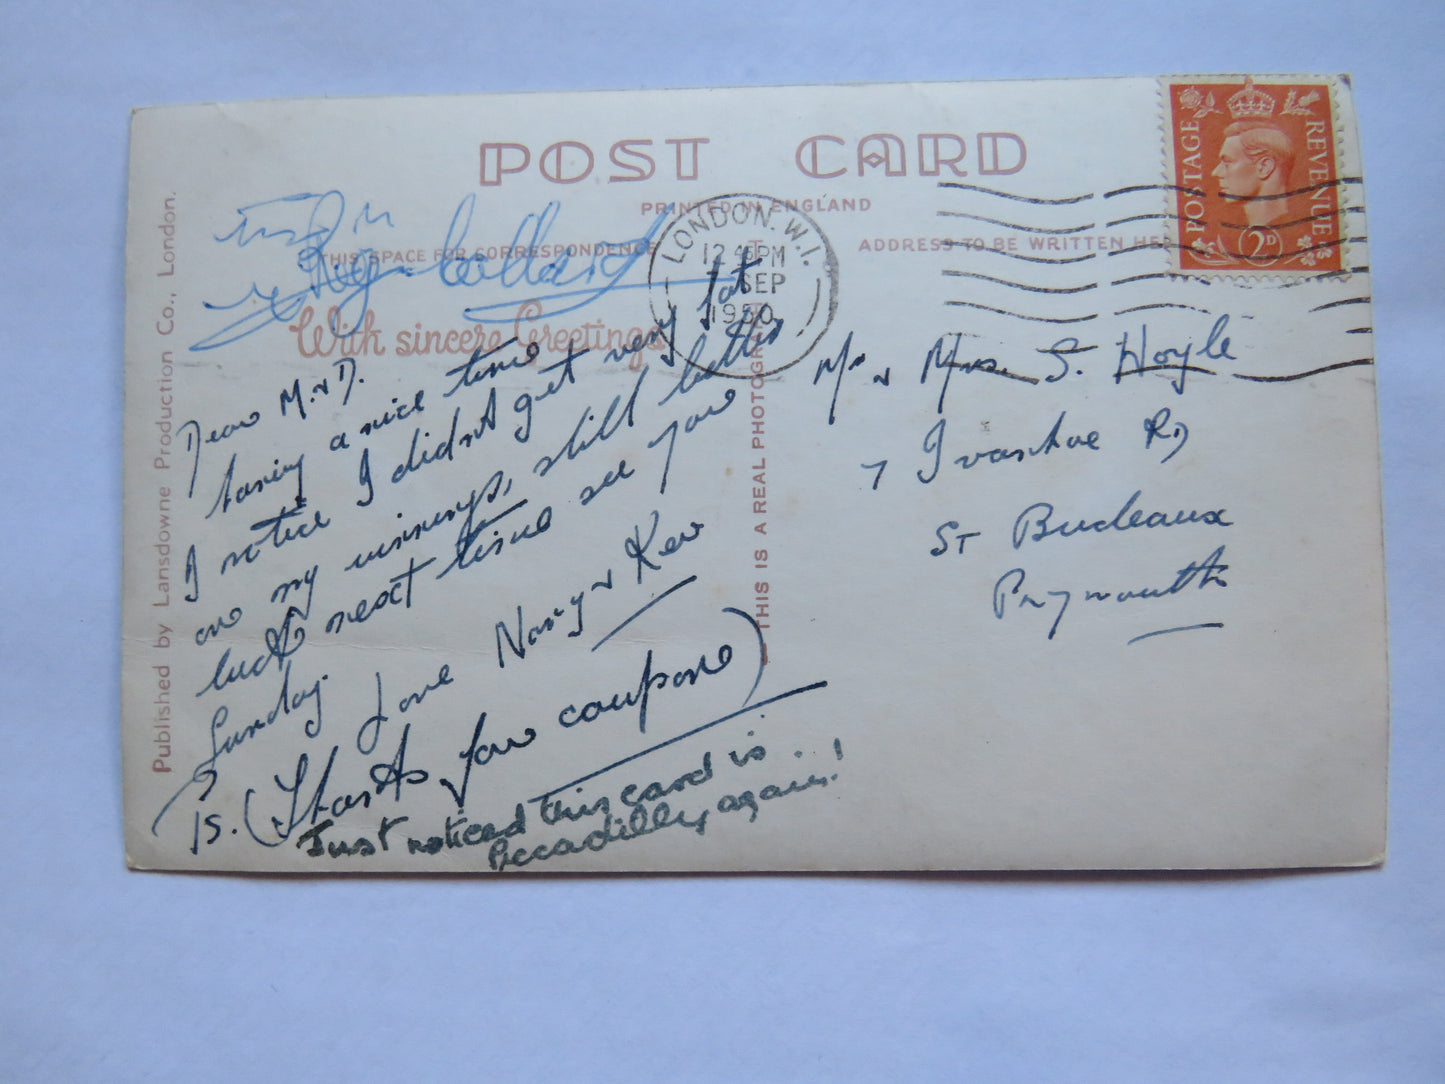 POST CARD
PRINTED IN ENGLAND
THIS SPACE FOR CORRESPONDENCE
ADDRESS TO BE WRITTEN HE
With sincere Greetings
Reg. Collard
LONDON. W.1.
12 45 PM
SEP
1950
POSTAGE REVENUE
2D
Dear M. & D.
having a nice time
I notice I didn't get very fat
on my winnings, still better
luck next time see you
Sunday.
Love Nancy & Kev
PS. (Thanks for coupons)
Just noticed this card is..
Piccadilly again!
Mr & Mrs. S. Hoyle
7 Ivanhoe RD
ST Budeaux
Plymouth
Published by Lansdowne Production Co., London.
THIS IS A REAL PHOTOGRA